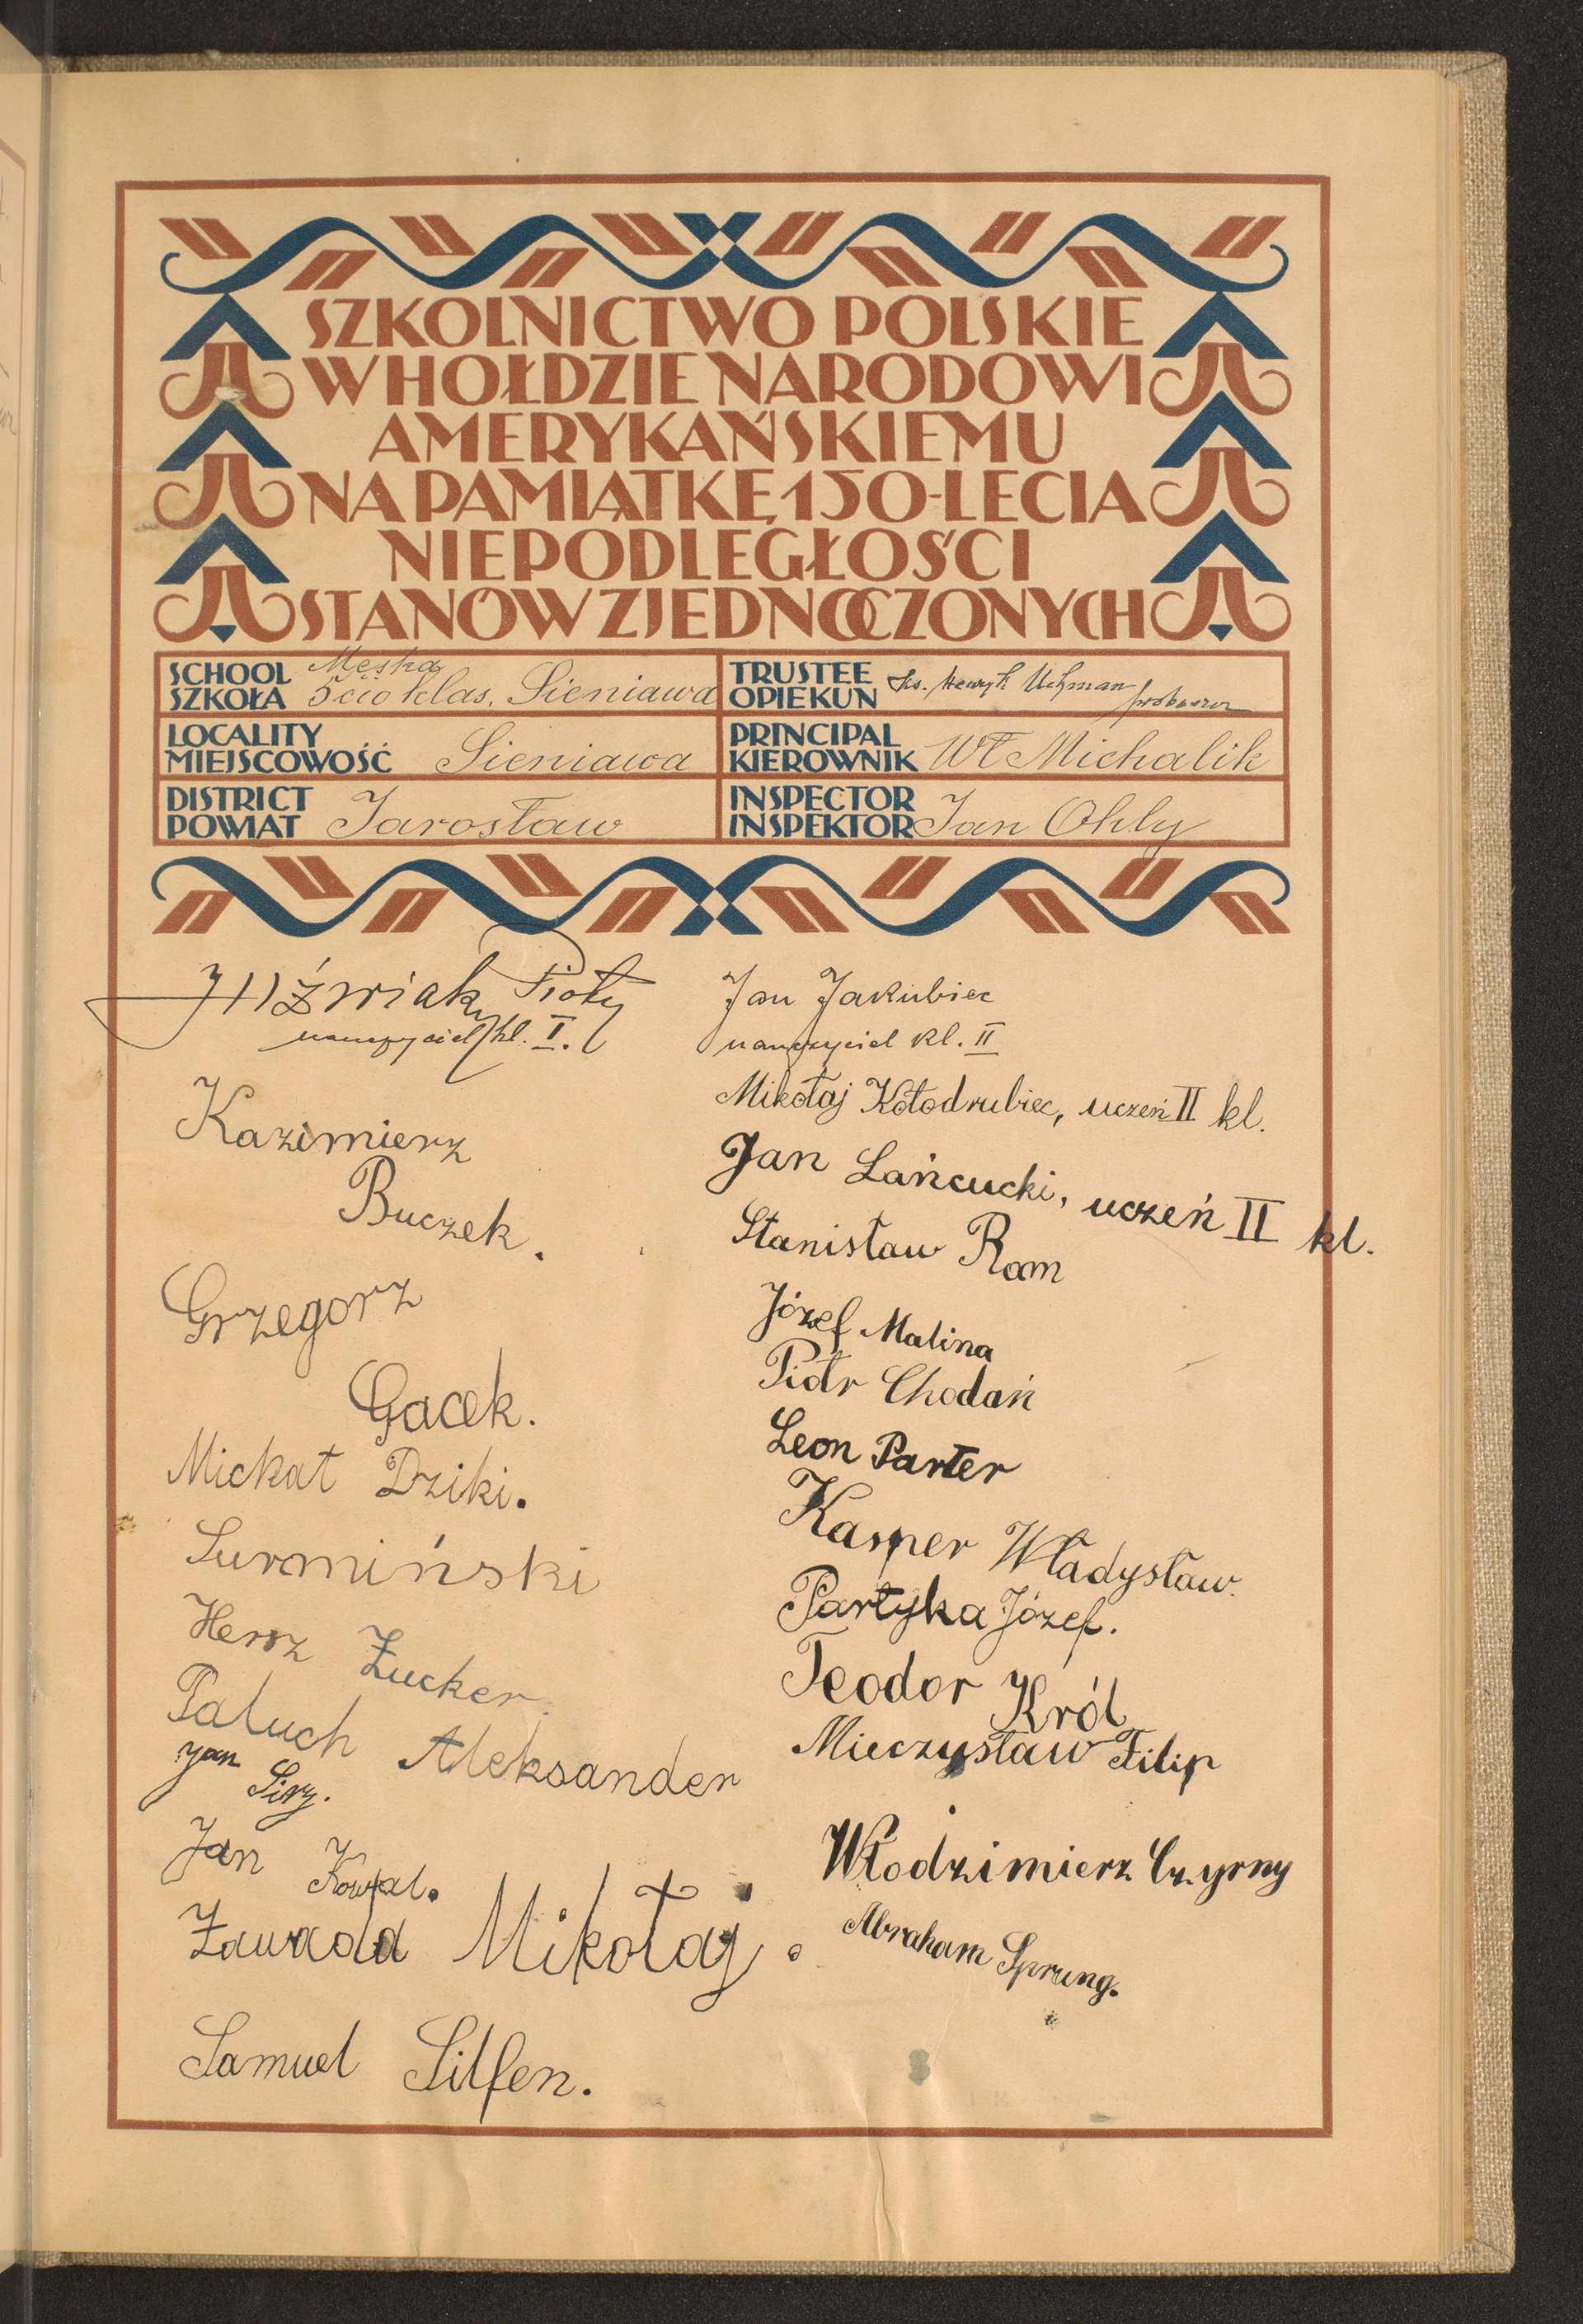 SZKOLNICTWO POLSKIE
W HOŁDZIE NARODOWI
AMERYKAŃSKIEMU
NA PAMIĄTKĘ 150-LECIA
NIEPODLEGŁOŚCI
STANÓW ZJEDNOCZONYCH
SCHOOL
SZKOŁA
Męska
5cio klas. Sieniawa
TRUSTEE
OPIEKUN
ks. Henryk Uchman
proboszcz
LOCALITY
MIEJSCOWOŚĆ
Sieniawa
PRINCIPAL
KIEROWNIK
Wł Michalik
DISTRICT
POWIAT
Jarosław
INSPECTOR
INSPEKTOR
Jan Ohly
Piotr
nauczyciel kl. I.
Kazimierz
Buczek.
Grzegorz
Gacek.
Michał Dziki.
Surmiński
Hersz Zucker.
Paluch Aleksander
Jan
Jan
Kowal.
Zawada Mikołaj.
Samuel Silfen.
Jan Jakubiec
nauczyciel kl. II
Mikołaj Kołodrubiec, uczeń II kl.
Jan Łańcucki, uczeń II kl.
Stanisław Rom
Józef Malina
Piotr Chodań
Leon Parter
Kasper Władysław.
Partyka Józef.
Teodor Król
Mieczysław Filip
Włodzimierz Czyrny
Abraham Sprung.